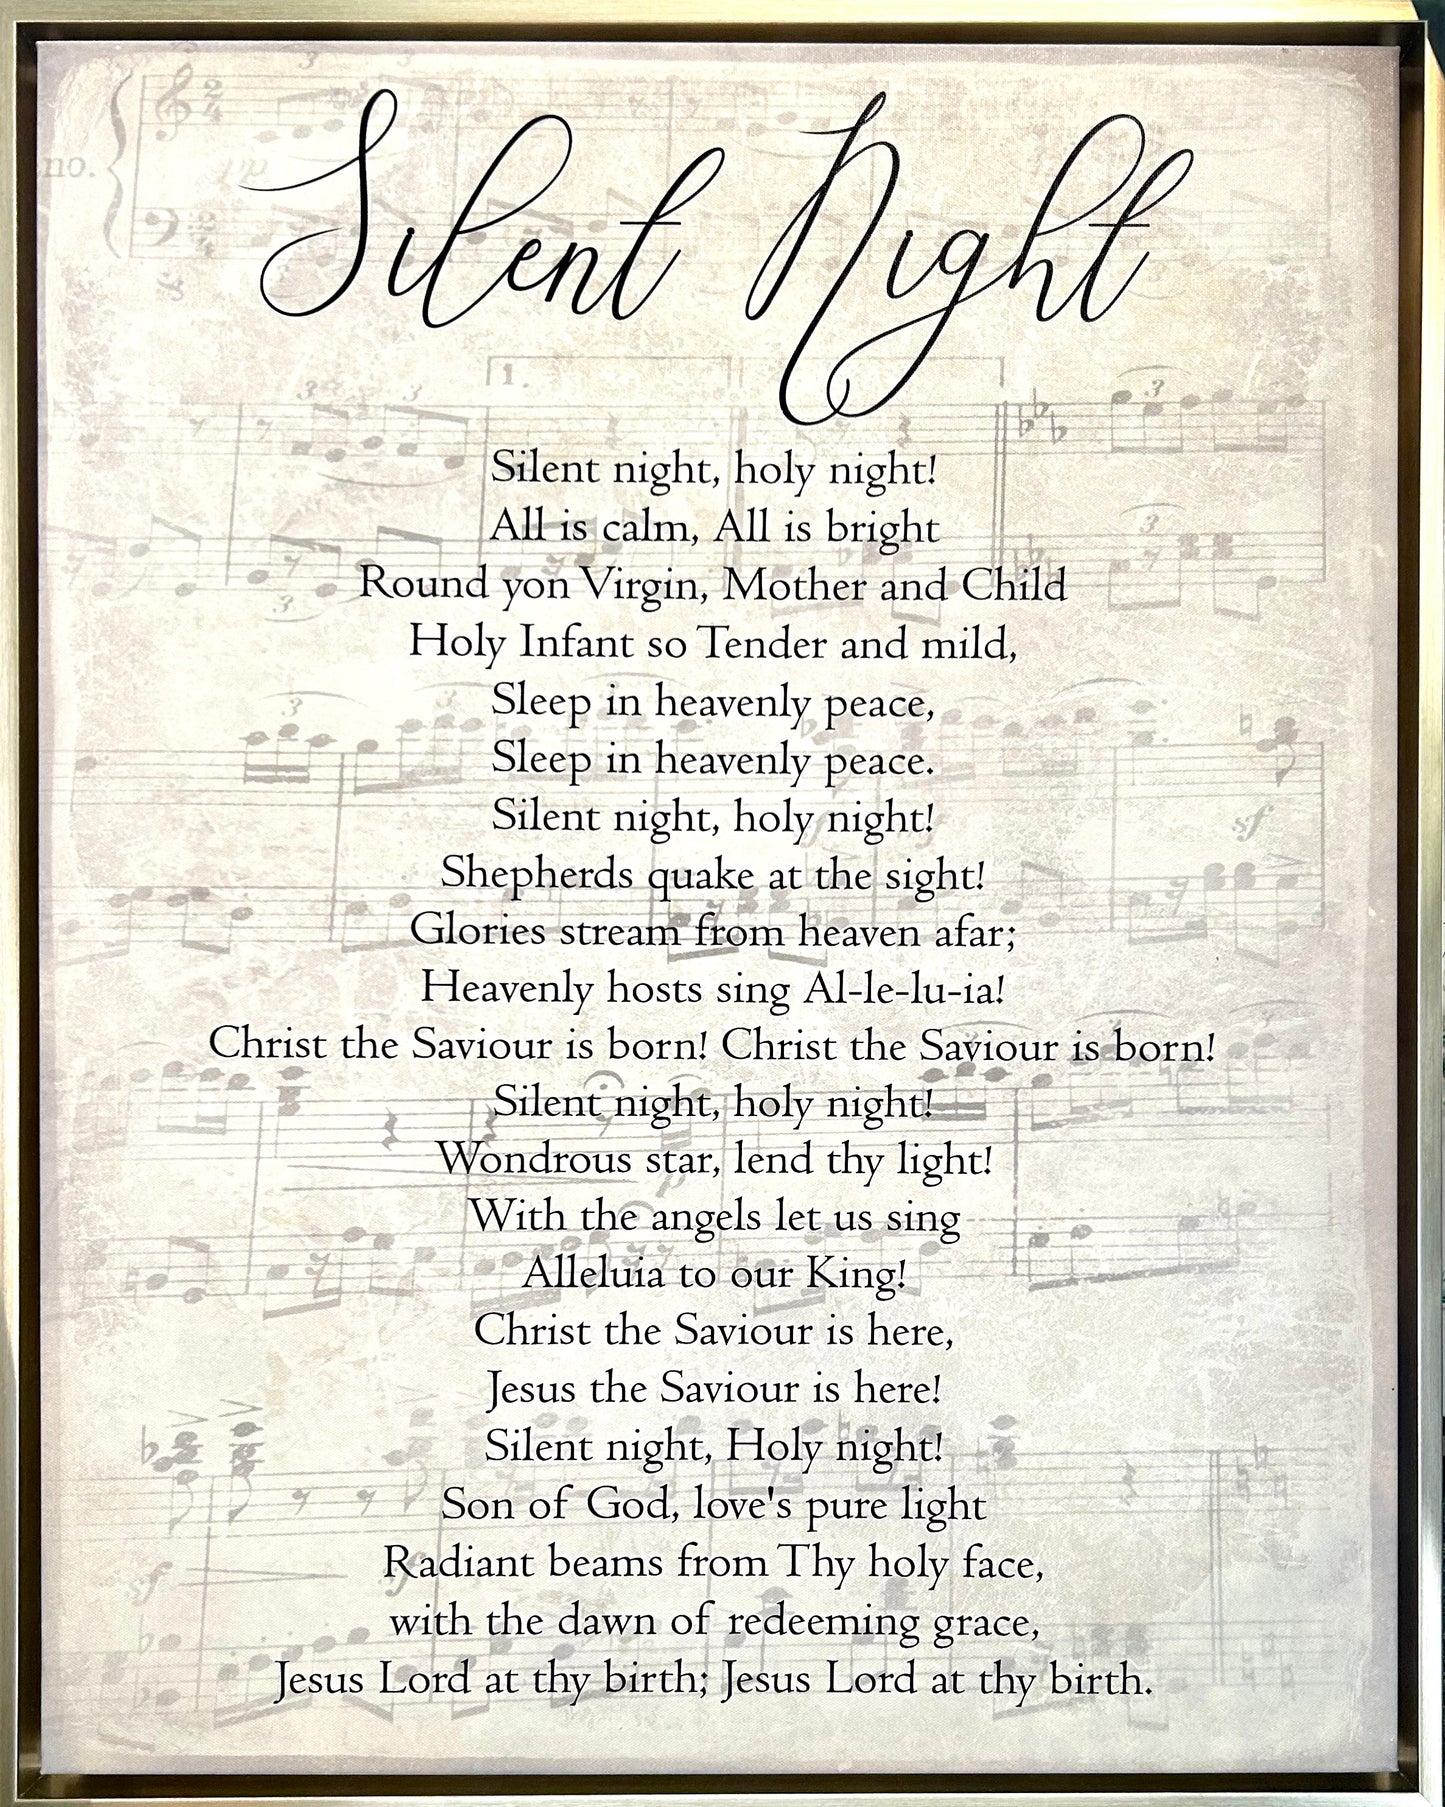 no.
Silent Night
1.
Silent night, holy night!
All is calm, All is bright
Round yon Virgin, Mother and Child
Holy Infant so Tender and mild,
Sleep in heavenly peace,
Sleep in heavenly peace.
Silent night, holy night!
Shepherds quake at the sight!
Glories stream from heaven afar;
Heavenly hosts sing Al-le-lu-ia!
Christ the Saviour is born! Christ the Saviour is born!
Silent night, holy night!
Wondrous star, lend thy light!
With the angels let us sing
Alleluia to our King!
Christ the Saviour is here,
Jesus the Saviour is here!
Silent night, Holy night!
Son of God, love's pure light
Radiant beams from Thy holy face,
with the dawn of redeeming grace,
Jesus Lord at thy birth; Jesus Lord at thy birth.